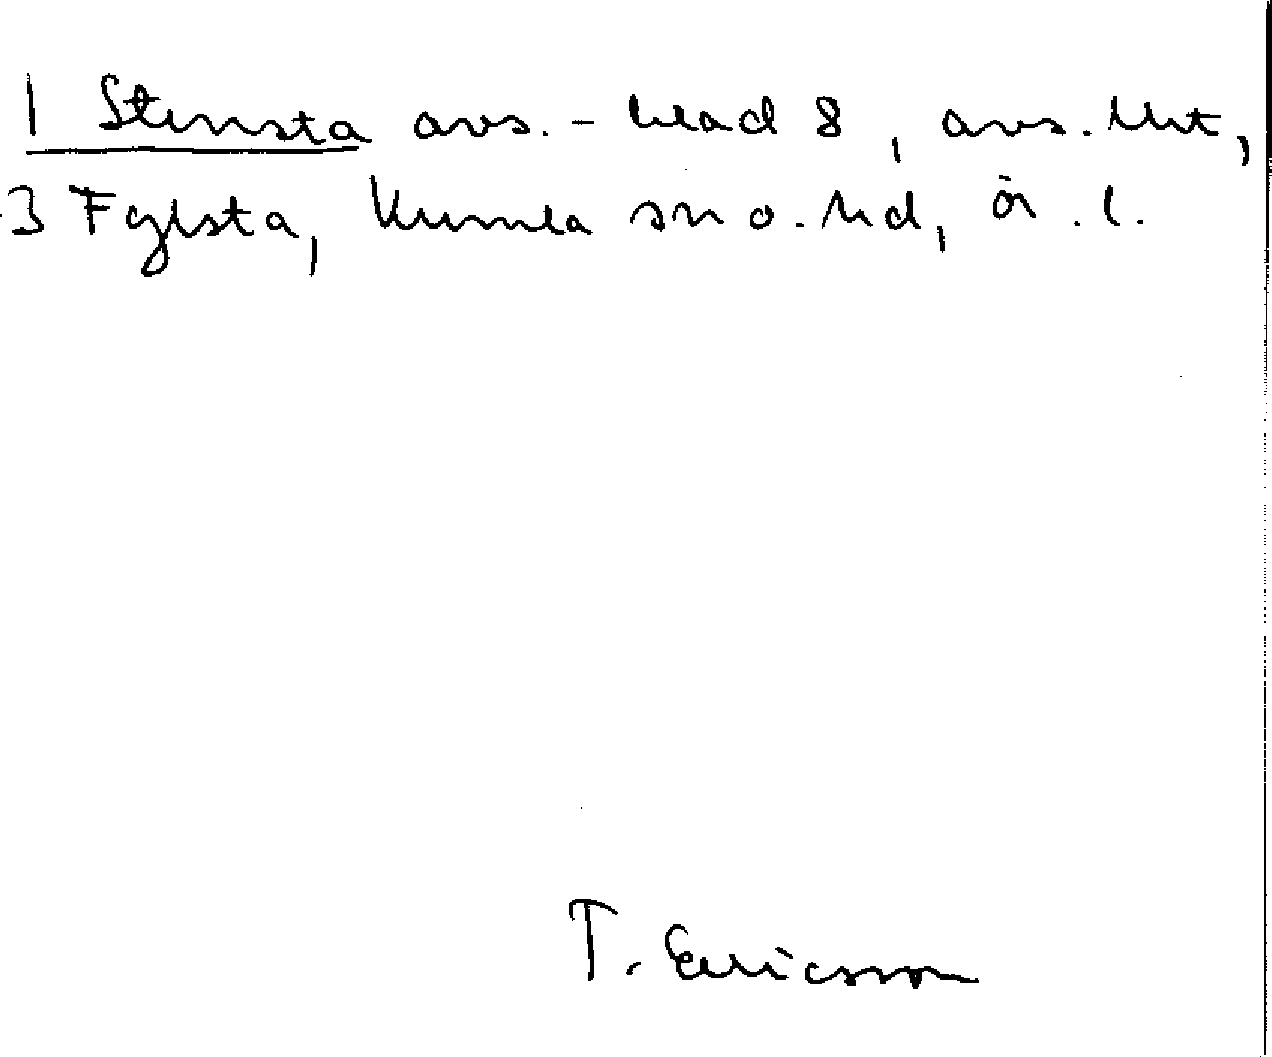 1 Stensta avs. - blad 8, avs. Utt,
3 Fylsta, Kumla sn o. hd, ör. l.
T. Ericsson